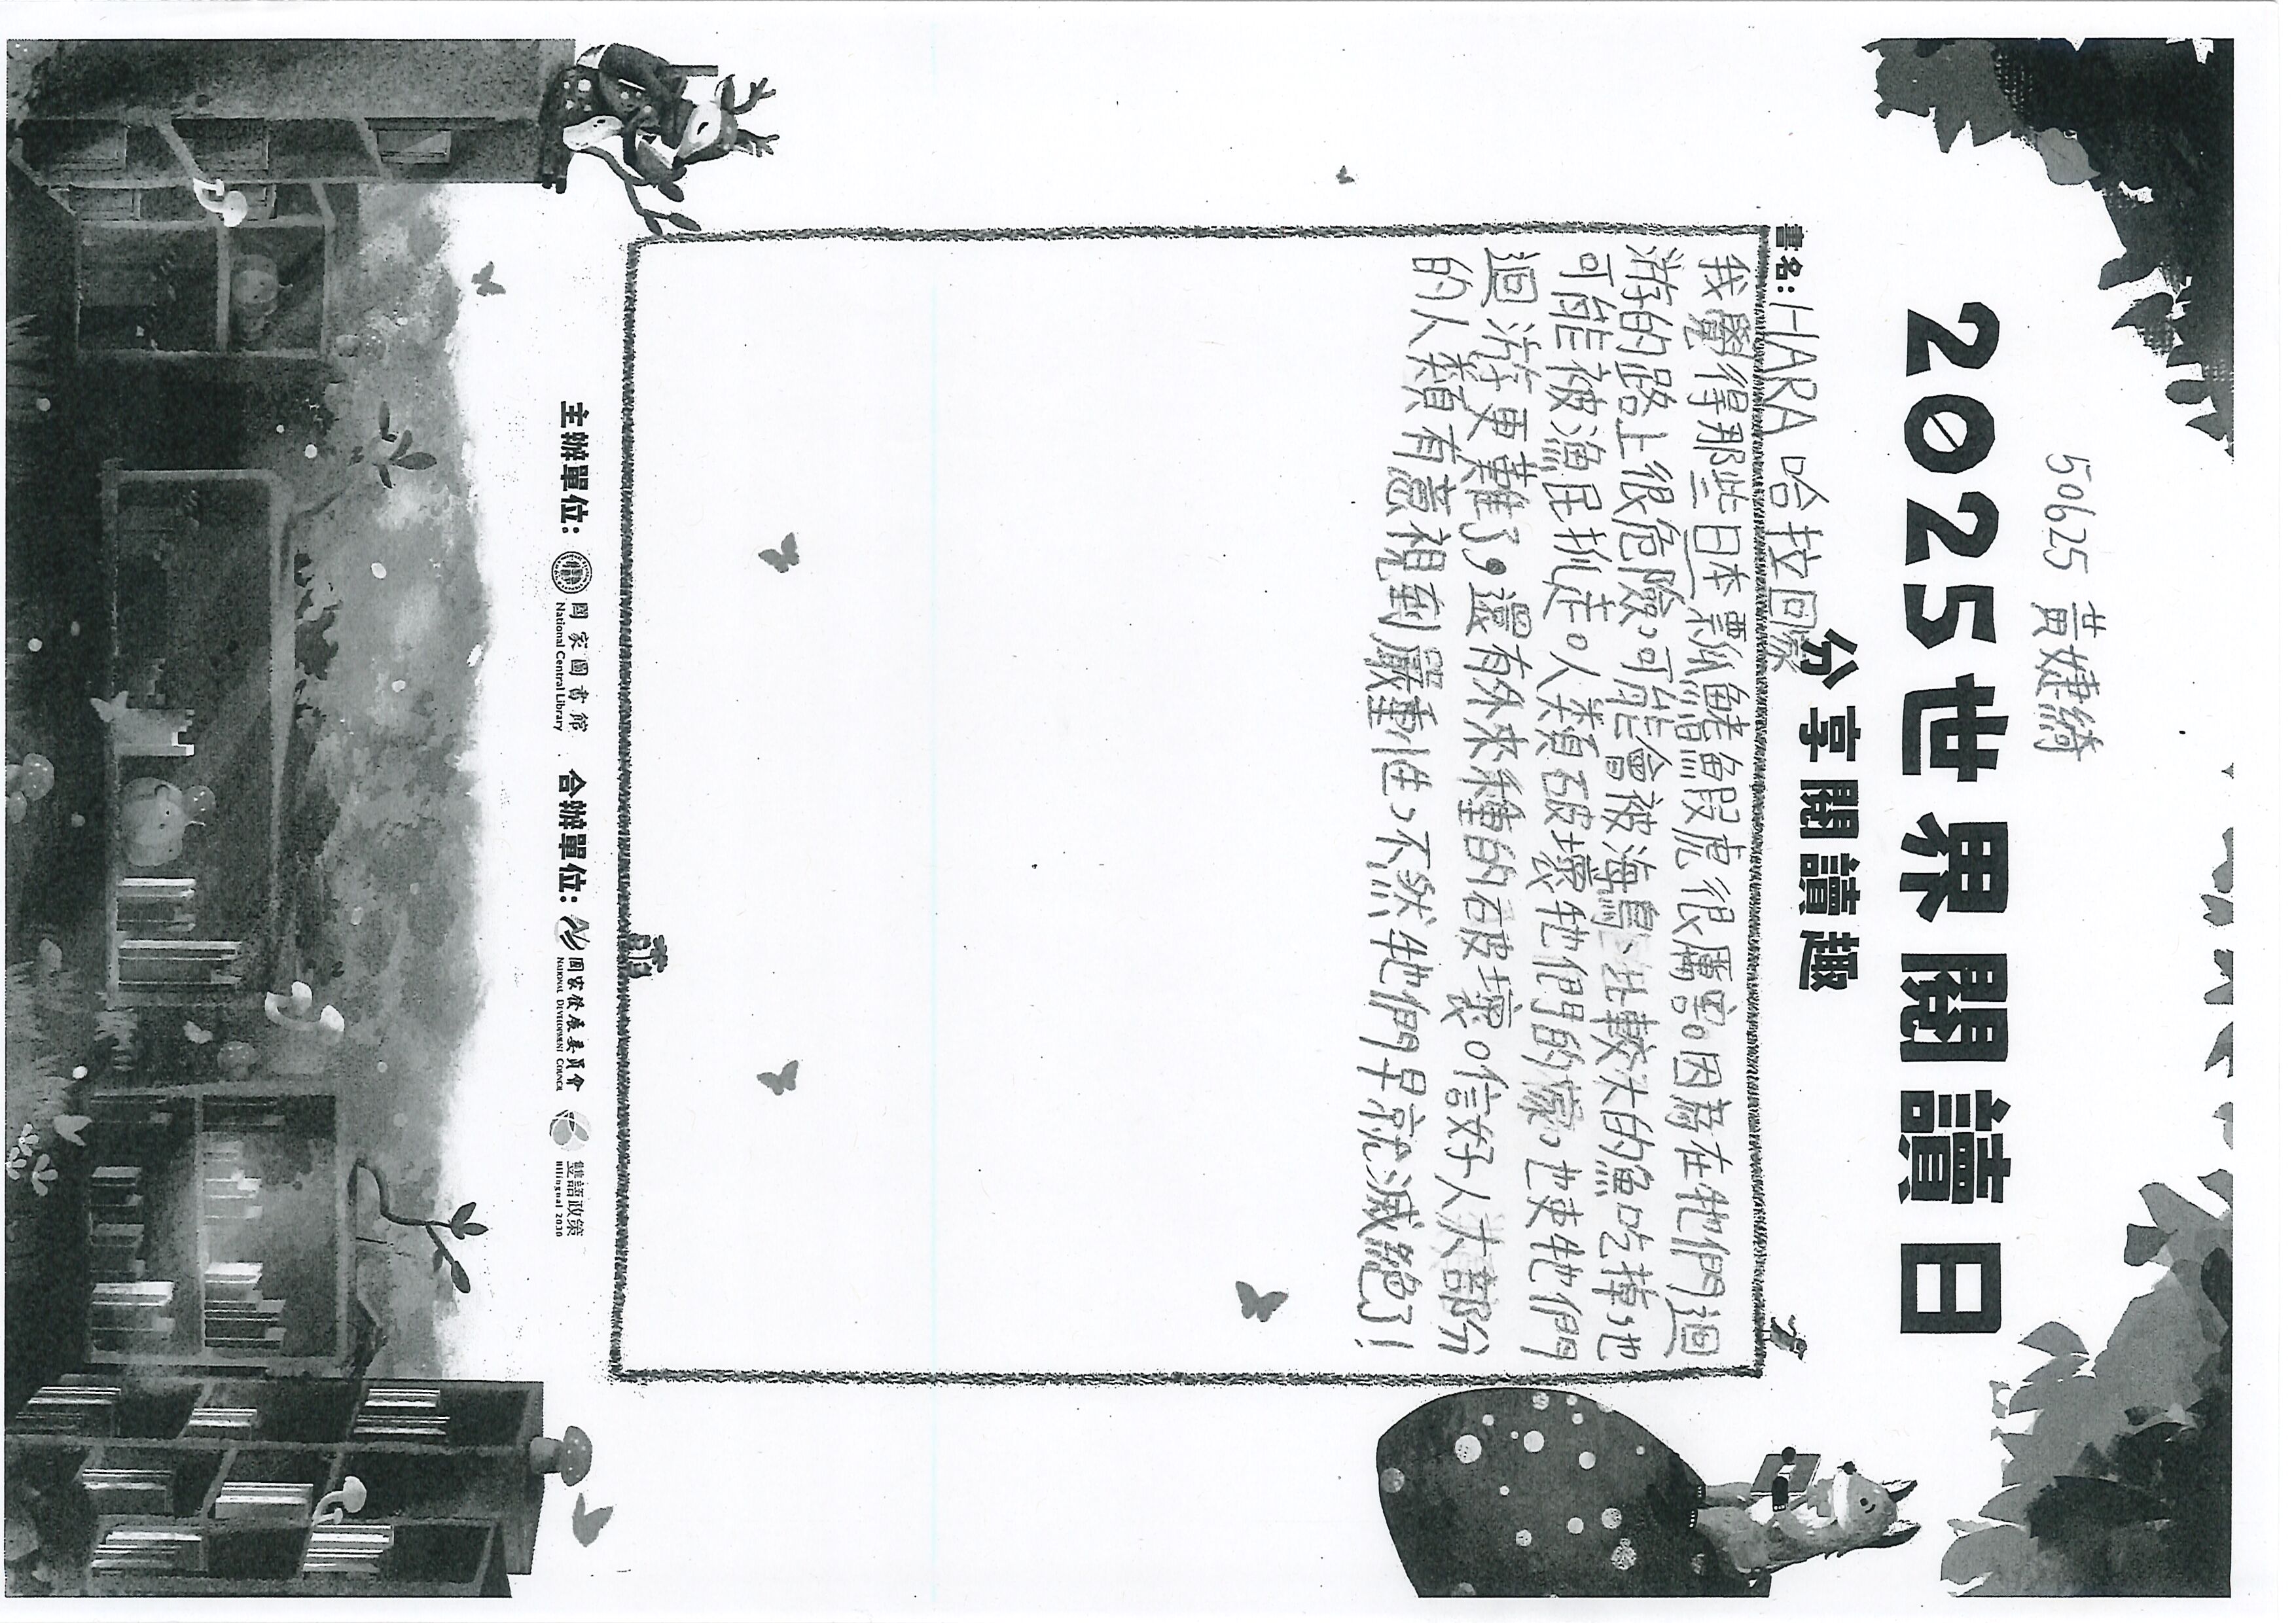 50625 黃婕綺
2025世界閱讀日
分享閱讀趣
書名：HARA 哈拉回家
我覺得那些日本禿頭鯊鰕虎很厲害。因為在牠們迴
游的路上很危險,可能會被海鳥、比較大的魚吃掉,也
可能被漁民抓走。人類破壞牠們的家,也使牠們
迴游更難了,還有外來種的破壞。信好人大部分
的人類有意視到嚴重性,不然牠們早就滅絕了!
主辦單位：國家圖書館 National Central Library 合辦單位：國家發展委員會 NATIONAL DEVELOPMENT COUNCIL 雙語政策 Bilingual 2030